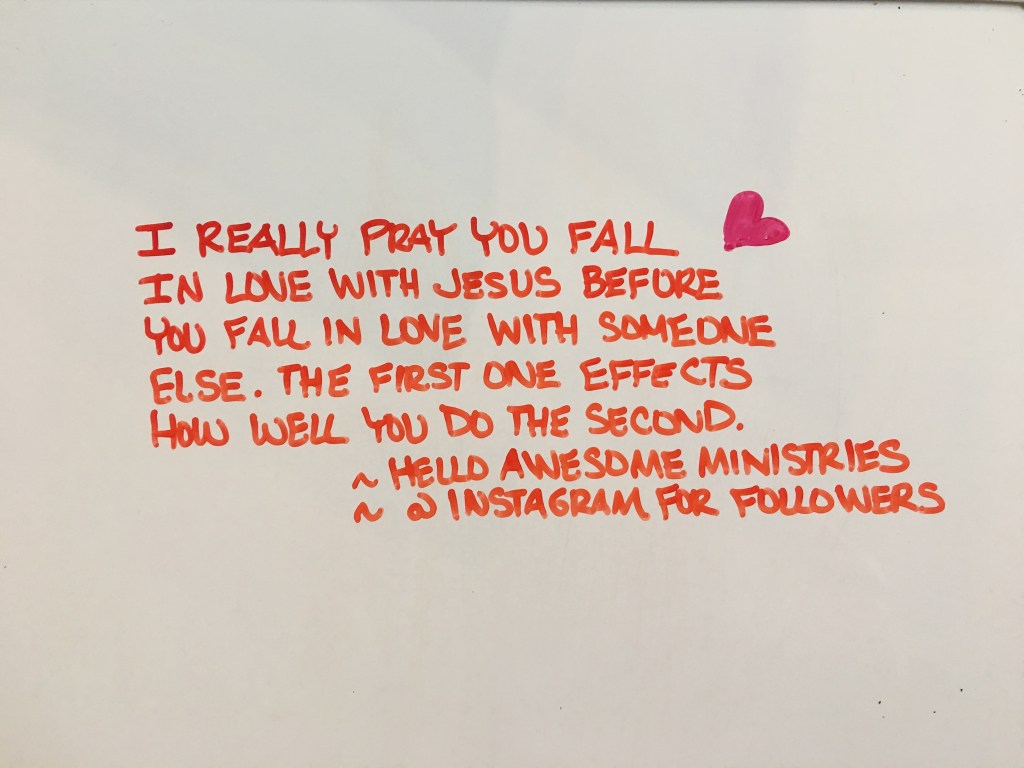 I REALLY PRAY YOU FALL
IN LOVE WITH JESUS BEFORE
YOU FALL IN LOVE WITH SOMEONE
ELSE. THE FIRST ONE EFFECTS
HOW WELL YOU DO THE SECOND.
~ HELLO AWESOME MINISTRIES
~ @ INSTAGRAM FOR FOLLOWERS